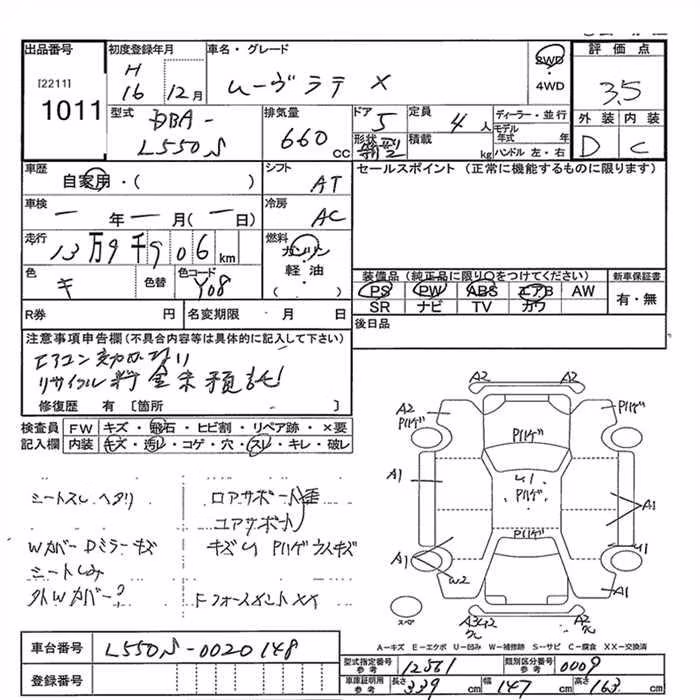 出品番号 初度登録年月 車名・グレード 2WD 4WD 評価点
[2211] H 16 12月 ムーヴ ラテ X 3.5
1011 型式 DBA- L550S 排気量 660 cc ドア 5 定員 4 人 ディーラー・並行
形状 積載 kg モデル年式 年 ハンドル 左・右 外装 内装
D C
車歴 自家用・( ) シフト AT セールスポイント (正常に機能するものに限ります)
車検 一 年 一 月(一日) 冷房 AC
走行 13万9千906 km 燃料 ガソリン 軽油 ( )
色 キ 色替 色コード Y08
装備品 (純正品に限り○をつけてください) 新車保証書
PS PW ABS エアB AW 有・無
SR ナビ TV カワ
R券 円 名変期限 月 日 後日品
注意事項申告欄 (不具合内容等は具体的に記入して下さい)
エアコン効かない
リサイクル料金未預託
修復歴 有 [箇所 ]
検査員 FW キズ・飛石・ヒビ割・リペア跡・×要
記入欄 内装 キズ・汚レ・コゲ・穴・スレ・キレ・破レ
シートスレ ヘタリ
ロアサポート
コアサポート
Wカバー Dミラーキズ
キズU Pハゲ ウスキズ
シートしみ
外Wカバー?
A2 A2
A2 Pハゲ Pハゲ Pハゲ
A1 U1 Pハゲ A1
Pハゲ U1
A1 W2 A1
スペア A3 A2
A－キズ E－エクボ U－凹み W－補修跡 S－サビ C－腐食 XX－交換済
車台番号 L550S-0020148
型式指定番号 参考 12561 類別区分番号 参考 0009
登録番号 車庫証明用 参考 長さ 339 cm 幅 147 cm 高さ 163 cm